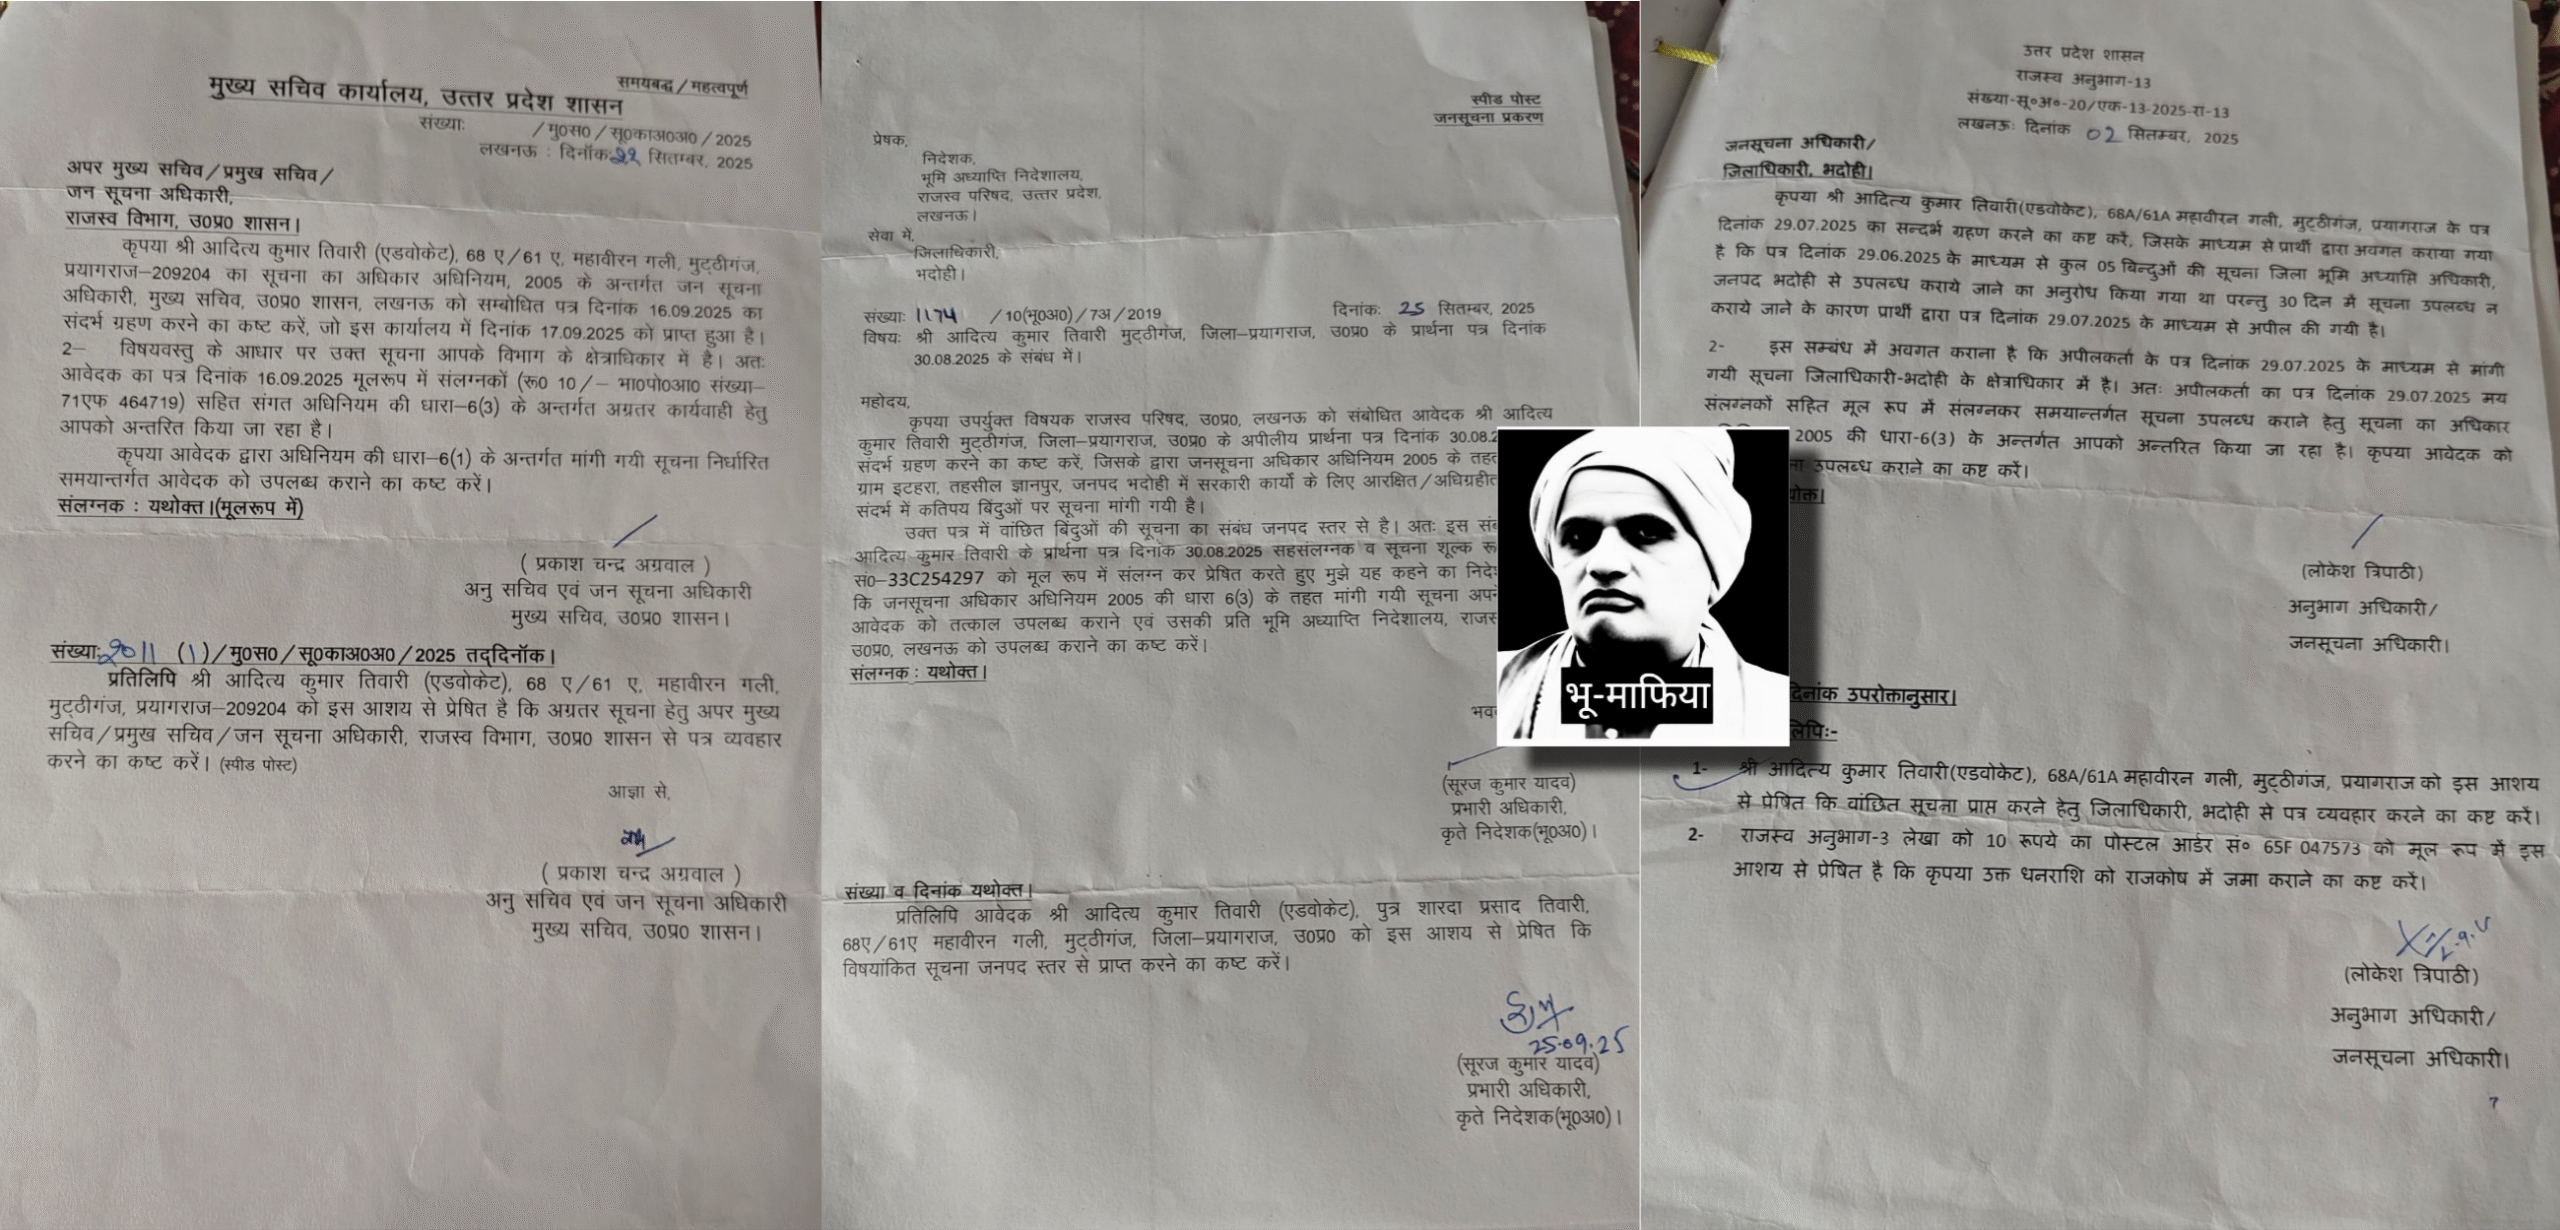 समयबद्ध/महत्वपूर्ण
मुख्य सचिव कार्यालय, उत्तर प्रदेश शासन
संख्याः /मु0स0/सू0का0अ0अ0/2025
लखनऊ : दिनॉकः22 सितम्बर, 2025
अपर मुख्य सचिव/प्रमुख सचिव/
जन सूचना अधिकारी,
राजस्व विभाग, उ0प्र0 शासन।
कृपया श्री आदित्य कुमार तिवारी (एडवोकेट), 68 ए/61 ए, महावीरन गली, मुट्ठीगंज,
प्रयागराज–209204 का सूचना का अधिकार अधिनियम, 2005 के अन्तर्गत जन सूचना
अधिकारी, मुख्य सचिव, उ0प्र0 शासन, लखनऊ को सम्बोधित पत्र दिनांक 16.09.2025 का
संदर्भ ग्रहण करने का कष्ट करें, जो इस कार्यालय में दिनांक 17.09.2025 को प्राप्त हुआ है।
2– विषयवस्तु के आधार पर उक्त सूचना आपके विभाग के क्षेत्राधिकार में है। अतः
आवेदक का पत्र दिनांक 16.09.2025 मूलरूप में संलग्नकों (रू0 10/– भा0पो0आ0 संख्या–
71एफ 464719) सहित संगत अधिनियम की धारा–6(3) के अन्तर्गत अग्रतर कार्यवाही हेतु
आपको अन्तरित किया जा रहा है।
कृपया आवेदक द्वारा अधिनियम की धारा–6(1) के अन्तर्गत मांगी गयी सूचना निर्धारित
समयान्तर्गत आवेदक को उपलब्ध कराने का कष्ट करें।
संलग्नक : यथोक्त।(मूलरूप में)
( प्रकाश चन्द्र अग्रवाल )
अनु सचिव एवं जन सूचना अधिकारी
मुख्य सचिव, उ0प्र0 शासन।
संख्याः2011 (1)/मु0स0/सू0का0अ0अ0/2025 तद्दिनॉक।
प्रतिलिपि श्री आदित्य कुमार तिवारी (एडवोकेट), 68 ए/61 ए, महावीरन गली,
मुट्ठीगंज, प्रयागराज–209204 को इस आशय से प्रेषित है कि अग्रतर सूचना हेतु अपर मुख्य
सचिव/प्रमुख सचिव/जन सूचना अधिकारी, राजस्व विभाग, उ0प्र0 शासन से पत्र व्यवहार
करने का कष्ट करें। (स्पीड पोस्ट)
आज्ञा से,
( प्रकाश चन्द्र अग्रवाल )
अनु सचिव एवं जन सूचना अधिकारी
मुख्य सचिव, उ0प्र0 शासन।
स्पीड पोस्ट
जनसूचना प्रकरण
प्रेषक,
निदेशक,
भूमि अध्याप्ति निदेशालय,
राजस्व परिषद, उत्तर प्रदेश,
लखनऊ।
सेवा में,
जिलाधिकारी,
भदोही।
संख्याः 1174 /10(भू0अ0)/7अ/2019 दिनांकः 25 सितम्बर, 2025
विषयः श्री आदित्य कुमार तिवारी मुट्ठीगंज, जिला–प्रयागराज, उ0प्र0 के प्रार्थना पत्र दिनांक
30.08.2025 के संबंध में।
महोदय,
कृपया उपर्युक्त विषयक राजस्व परिषद, उ0प्र0, लखनऊ को संबोधित आवेदक श्री आदित्य
कुमार तिवारी मुट्ठीगंज, जिला–प्रयागराज, उ0प्र0 के अपीलीय प्रार्थना पत्र दिनांक 30.08.2
संदर्भ ग्रहण करने का कष्ट करें, जिसके द्वारा जनसूचना अधिकार अधिनियम 2005 के तहत
ग्राम इटहरा, तहसील ज्ञानपुर, जनपद भदोही में सरकारी कार्यो के लिए आरक्षित/अधिग्रहीत
संदर्भ में कतिपय बिंदुओं पर सूचना मांगी गयी है।
उक्त पत्र में वांछित बिंदुओं की सूचना का संबंध जनपद स्तर से है। अतः इस
आदित्य कुमार तिवारी के प्रार्थना पत्र दिनांक 30.08.2025 सहसंलग्नक व सूचना शूल्क
सं0–33C254297 को मूल रूप में संलग्न कर प्रेषित करते हुए मुझे यह कहने का
कि जनसूचना अधिकार अधिनियम 2005 की धारा 6(3) के तहत मांगी गयी सूचना
आवेदक को तत्काल उपलब्ध कराने एवं उसकी प्रति भूमि अध्याप्ति निदेशालय,
उ0प्र0, लखनऊ को उपलब्ध कराने का कष्ट करें।
संलग्नक : यथोक्त।
(सूरज कुमार यादव)
प्रभारी अधिकारी,
कृते निदेशक(भू0अ0)।
संख्या व दिनांक यथोक्त।
प्रतिलिपि आवेदक श्री आदित्य कुमार तिवारी (एडवोकेट), पुत्र शारदा प्रसाद तिवारी,
68ए/61ए महावीरन गली, मुट्ठीगंज, जिला–प्रयागराज, उ0प्र0 को इस आशय से प्रेषित कि
विषयांकित सूचना जनपद स्तर से प्राप्त करने का कष्ट करें।
25.09.25
(सूरज कुमार यादव)
प्रभारी अधिकारी,
कृते निदेशक(भू0अ0)।
भू-माफिया
उत्तर प्रदेश शासन
राजस्व अनुभाग-13
संख्या-सू०अ०-20/एक-13-2025-रा-13
लखनऊः दिनांक 02 सितम्बर, 2025
जनसूचना अधिकारी/
जिलाधिकारी, भदोही।
कृपया श्री आदित्य कुमार तिवारी(एडवोकेट), 68A/61A महावीरन गली, मुट्ठीगंज, प्रयागराज के पत्र
दिनांक 29.07.2025 का सन्दर्भ ग्रहण करने का कष्ट करें, जिसके माध्यम से प्रार्थी द्वारा अवगत कराया गया
है कि पत्र दिनांक 29.06.2025 के माध्यम से कुल 05 बिन्दुओं की सूचना जिला भूमि अध्याप्ति अधिकारी,
जनपद भदोही से उपलब्ध कराये जाने का अनुरोध किया गया था परन्तु 30 दिन में सूचना उपलब्ध न
कराये जाने के कारण प्रार्थी द्वारा पत्र दिनांक 29.07.2025 के माध्यम से अपील की गयी है।
2- इस सम्बंध में अवगत कराना है कि अपीलकर्ता के पत्र दिनांक 29.07.2025 के माध्यम से मांगी
गयी सूचना जिलाधिकारी-भदोही के क्षेत्राधिकार में है। अतः अपीलकर्ता का पत्र दिनांक 29.07.2025 मय
संलग्नकों सहित मूल रूप में संलग्नकर समयान्तर्गत सूचना उपलब्ध कराने हेतु सूचना का अधिकार
2005 की धारा-6(3) के अन्तर्गत आपको अन्तरित किया जा रहा है। कृपया आवेदक को
उपलब्ध कराने का कष्ट करें।
(लोकेश त्रिपाठी)
अनुभाग अधिकारी/
जनसूचना अधिकारी।
दिनांक उपरोक्तानुसार।
1- श्री आदित्य कुमार तिवारी(एडवोकेट), 68A/61A महावीरन गली, मुट्ठीगंज, प्रयागराज को इस आशय
से प्रेषित कि वांछित सूचना प्राप्त करने हेतु जिलाधिकारी, भदोही से पत्र व्यवहार करने का कष्ट करें।
2- राजस्व अनुभाग-3 लेखा को 10 रूपये का पोस्टल आर्डर सं० 65F 047573 को मूल रूप में इस
आशय से प्रेषित है कि कृपया उक्त धनराशि को राजकोष में जमा कराने का कष्ट करें।
(लोकेश त्रिपाठी)
अनुभाग अधिकारी/
जनसूचना अधिकारी।